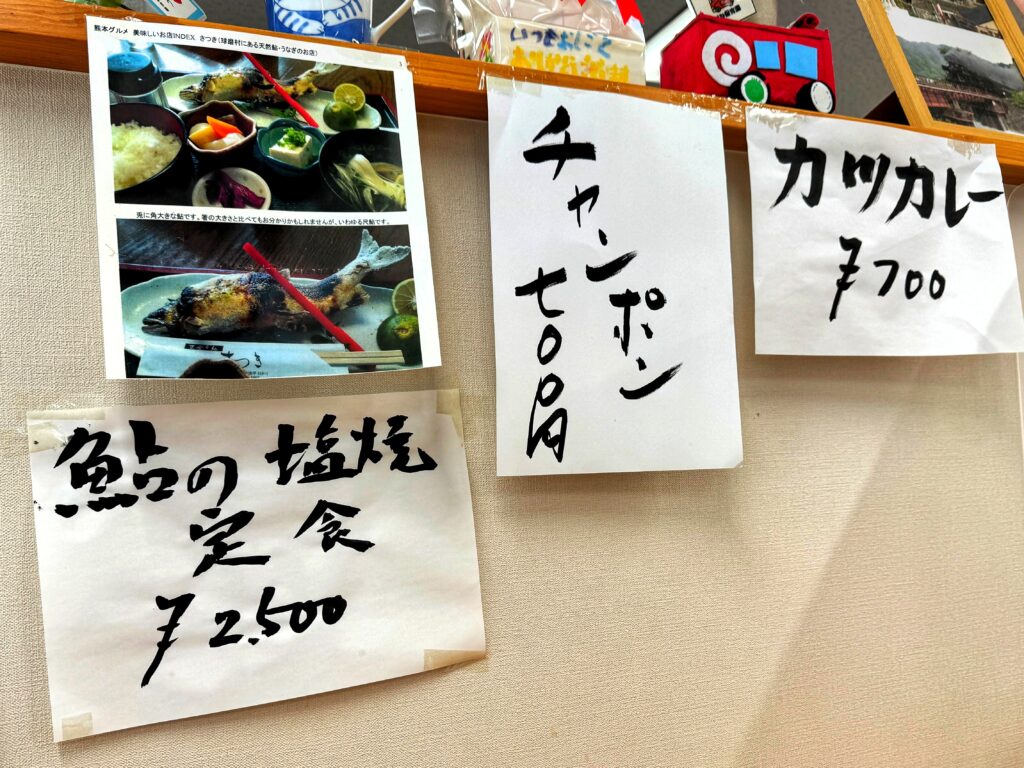 熊本グルメ 美味しいお店INDEX さつき（球磨村にある天然鮎・うなぎのお店）
3
兎に角大きな鮎です。箸の大きさと比べてもお分かりかもしれませんが、いわゆる尺鮎です。
さつき
鮎の塩焼
定食
¥2,500
チャンポン
七〇〇円
カツカレー
¥700